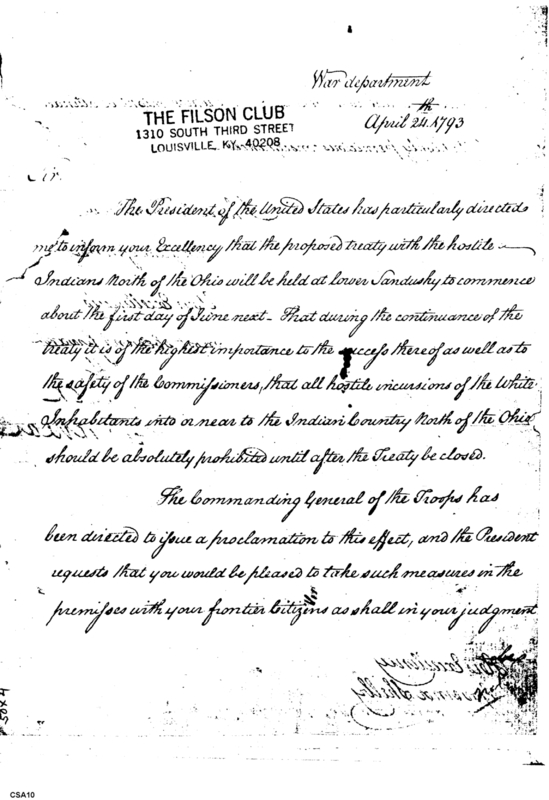 War department
April 24th 1793
THE FILSON CLUB
1310 SOUTH THIRD STREET
LOUISVILLE, KY. 40208
Sir
The President of the United States has particularly directed
me to inform your Excellency that the proposed treaty with the hostile
Indians North of the Ohio will be held at lower Sandusky to commence
about the first day of June next - That during the continuance of the
treaty it is of the highest importance to the success thereof as well as to
the safety of the Commissioners, that all hostile incursions of the White
Inhabitants into or near to the Indian Country North of the Ohio
should be absolutely prohibited until after the Treaty be closed.
The Commanding General of the Troops has
been directed to issue a proclamation to this effect, and the President
requests that you would be pleased to take such measures in the
premisses with your frontier Citizens as shall in your judgment
CSA10